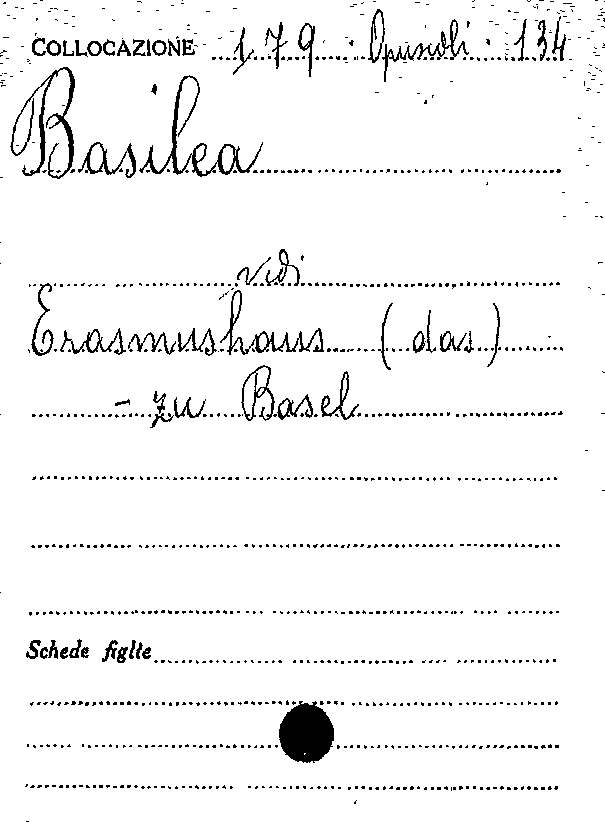 COLLOCAZIONE 179 · Opuscoli · 134
Basilea
vidi
Erasmushaus (das)
- zu Basel
Schede figlie